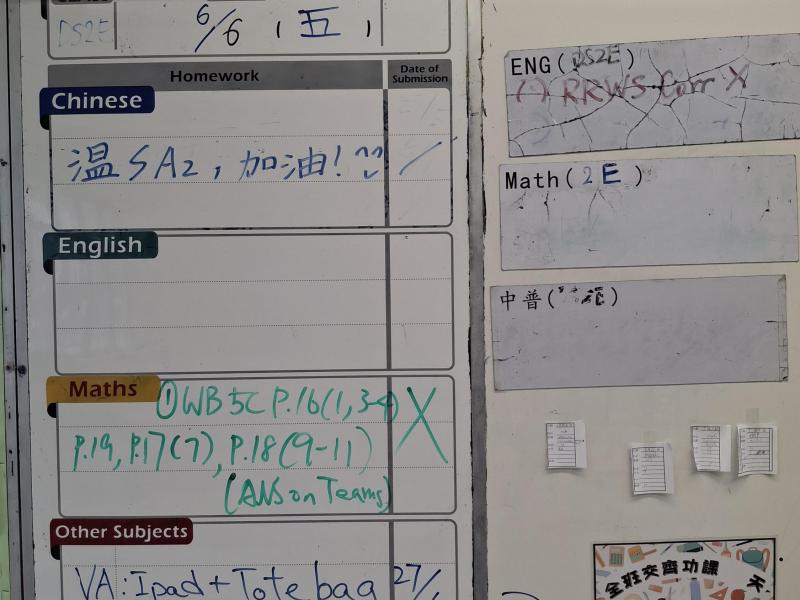 DS2E
6/6 (五)
Homework
Date of Submission
Chinese
温SA2,加油!
English
Maths
①WB5C P.16(1,3-4)
P.19, P.17(7), P.18(9-11)
(ANS on Teams)
X
Other Subjects
VA: Ipad + Tote bag 27/
ENG(DS2E)
(1) RRWS Corr X
Math(2E)
中普( )
全班交齊功課 天